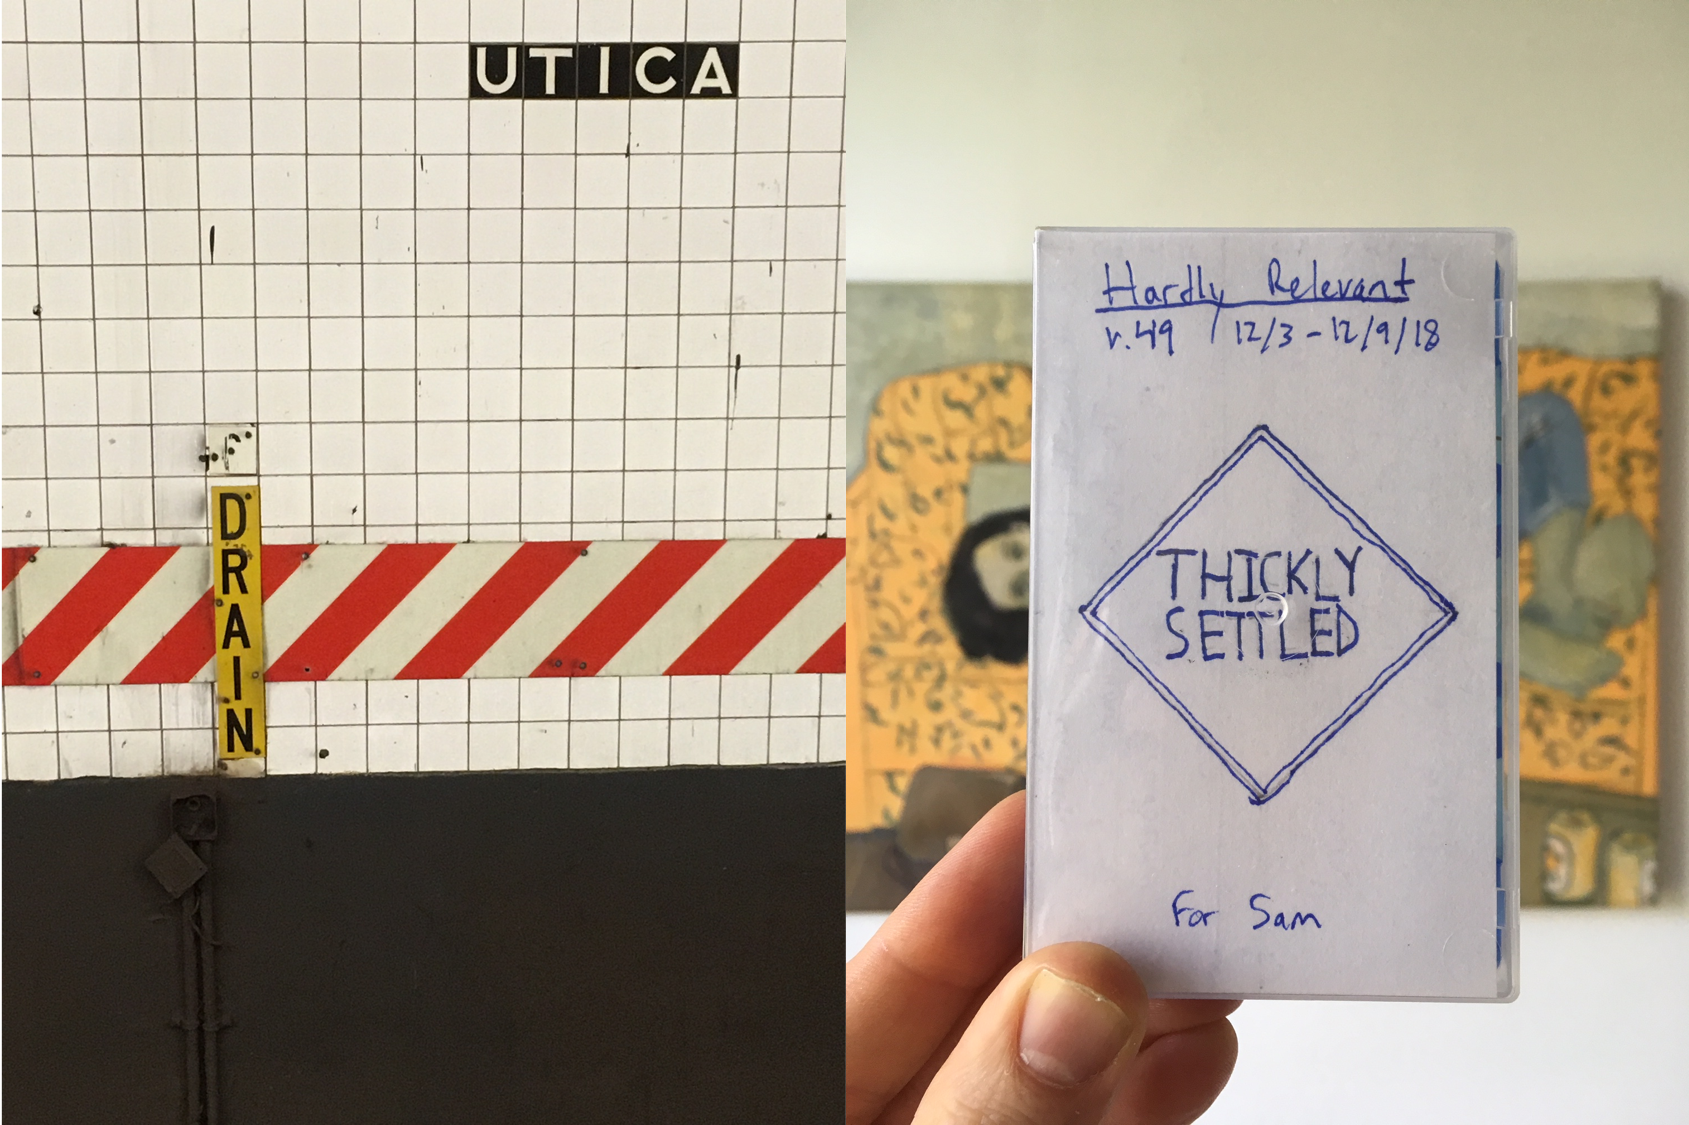 UTICA
DRAIN
Hardly Relevant
v.49 / 12/3 - 12/9/18
THICKLY
SETTLED
For Sam